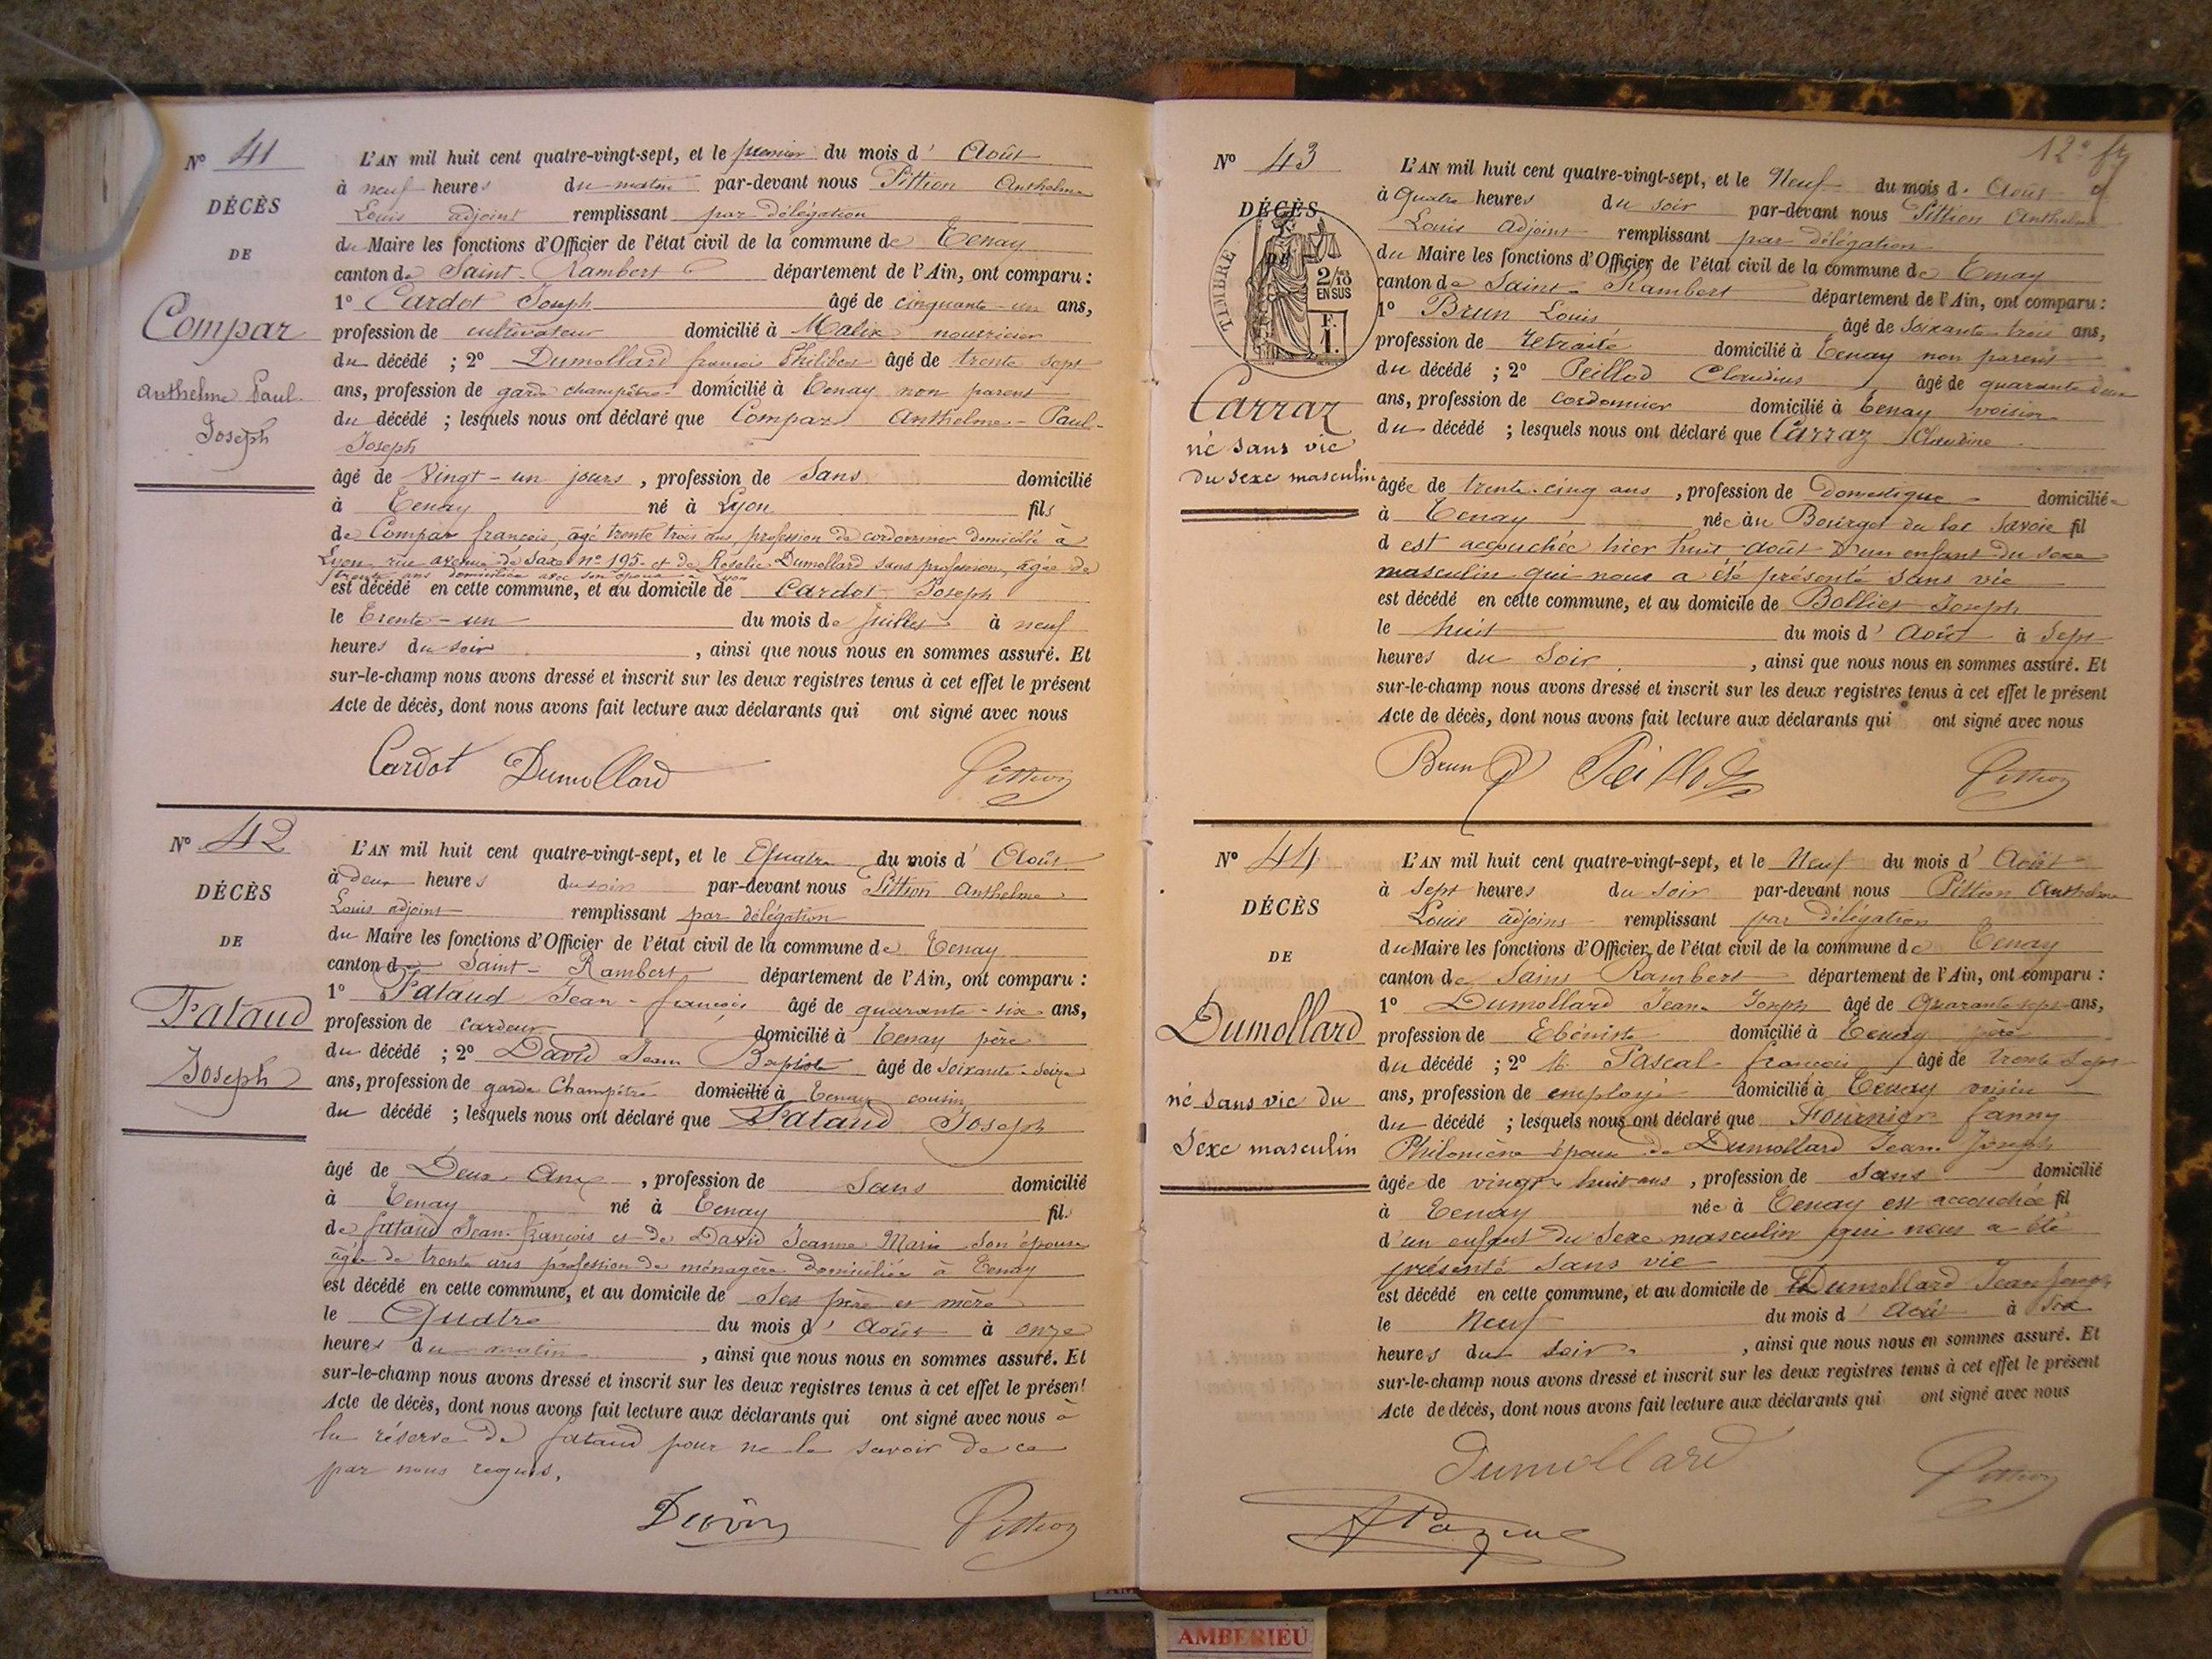 Nº 41
DÉCÈS
DE
Compar
Anthelme Paul
Joseph
L'AN mil huit cent quatre-vingt-sept, et le premier du mois d' Août
à neuf heures du matin par-devant nous Pittion Anthelme
Louis adjoint remplissant par délégation
du Maire les fonctions d'Officier de l'état civil de la commune de Tenay
canton de Saint-Rambert département de l'Ain, ont comparu :
1º Cardot Joseph âgé de cinquante-un ans,
profession de cultivateur domicilié à Malix nourricier
du décédé ; 2º Dumollard françois Philibert âgé de trente sept
ans, profession de garde champêtre domicilié à Tenay non parent
du décédé ; lesquels nous ont déclaré que Compar Anthelme-Paul-
Joseph
âgé de Vingt-un jours, profession de Sans domicilié
à Tenay né à Lyon fils
de Compar françois, âgé trente trois ans, profession de cordonnier domicilié à
Lyon rue avenue de Saxe nº 195 et de Rosalie Dumollard sans profession, âgée de
trente ans domiciliée avec son époux à Lyon
est décédé en cette commune, et au domicile de Cardot Joseph
le Trente-un du mois de Juillet à neuf
heures du soir, ainsi que nous nous en sommes assuré. Et
sur-le-champ nous avons dressé et inscrit sur les deux registres tenus à cet effet le présent
Acte de décès, dont nous avons fait lecture aux déclarants qui ont signé avec nous
Cardot Dumollard Pittion
Nº 42
DÉCÈS
DE
Pataud
Joseph
L'AN mil huit cent quatre-vingt-sept, et le Quatre du mois d' Août
à deux heures du soir par-devant nous Pittion Anthelme
Louis adjoint remplissant par délégation
du Maire les fonctions d'Officier de l'état civil de la commune de Tenay
canton de Saint-Rambert département de l'Ain, ont comparu :
1º Pataud Jean-françois âgé de quarante-six ans,
profession de cardeur domicilié à Tenay père
du décédé ; 2º David Jean Baptiste âgé de soixante-seize
ans, profession de garde Champêtre domicilié à Tenay cousin
du décédé ; lesquels nous ont déclaré que Pataud Joseph
âgé de Deux Ans, profession de Sans domicilié
à Tenay né à Tenay fils
de Pataud Jean-françois et de David Jeanne Marie son épouse
âgée de trente ans profession de ménagère domiciliée à Tenay
est décédé en cette commune, et au domicile de Ses père et mère
le Quatre du mois d' Août à onze
heures du matin, ainsi que nous nous en sommes assuré. Et
sur-le-champ nous avons dressé et inscrit sur les deux registres tenus à cet effet le présent
Acte de décès, dont nous avons fait lecture aux déclarants qui ont signé avec nous à
la réserve de Pataud pour ne le savoir de ce
par nous requis.
David Pittion
12e
Nº 43
DÉCÈS
DE
TIMBRE
2/10
EN SUS
F.
1.
Carraz
né sans vie
du sexe masculin
L'AN mil huit cent quatre-vingt-sept, et le Neuf du mois d' Août
à Quatre heures du soir par-devant nous Pittion Anthelme
Louis Adjoint remplissant par délégation
du Maire les fonctions d'Officier de l'état civil de la commune de Tenay
canton de Saint-Rambert département de l'Ain, ont comparu :
1º Brun Louis âgé de soixante trois ans,
profession de retraité domicilié à Tenay non parent
du décédé ; 2º Peillod Claudius âgé de quarante deux
ans, profession de cordonnier domicilié à Tenay voisin
du décédé ; lesquels nous ont déclaré que Carraz Claudine
âgée de trente-cinq ans, profession de Domestique domiciliée
à Tenay née au Bourget du lac Savoie fil
d est accouchée hier huit Août d'un enfant du sexe
masculin qui nous a été présenté sans vie
est décédé en cette commune, et au domicile de Bolliet Joseph
le huit du mois d' Août à Sept
heures du Soir, ainsi que nous nous en sommes assuré. Et
sur-le-champ nous avons dressé et inscrit sur les deux registres tenus à cet effet le présent
Acte de décès, dont nous avons fait lecture aux déclarants qui ont signé avec nous
Brun Peillod Pittion
Nº 44
DÉCÈS
DE
Dumollard
né sans vie du
Sexe masculin
L'AN mil huit cent quatre-vingt-sept, et le Neuf du mois d' Août
à Sept heures du soir par-devant nous Pittion Anthelme
Louis adjoint remplissant par délégation
du Maire les fonctions d'Officier de l'état civil de la commune de Tenay
canton de Saint Rambert département de l'Ain, ont comparu :
1º Dumollard Jean Joseph âgé de Quarante sept ans,
profession de Ebéniste domicilié à Tenay père
du décédé ; 2º Pascal françois âgé de trente sept
ans, profession de employé domicilié à Tenay voisin
du décédé ; lesquels nous ont déclaré que Fournier fanny
Philomène épouse de Dumollard Jean Joseph
âgée de vingt-huit ans, profession de Sans domicilié
à Tenay née à Tenay est accouchée fil
d'un enfant du Sexe masculin qui nous a été
présenté sans vie
est décédé en cette commune, et au domicile de Dumollard Jean Joseph
le Neuf du mois d' Août à Six
heures du soir, ainsi que nous nous en sommes assuré. Et
sur-le-champ nous avons dressé et inscrit sur les deux registres tenus à cet effet le présent
Acte de décès, dont nous avons fait lecture aux déclarants qui ont signé avec nous
Dumollard Pittion
AMBERIEU